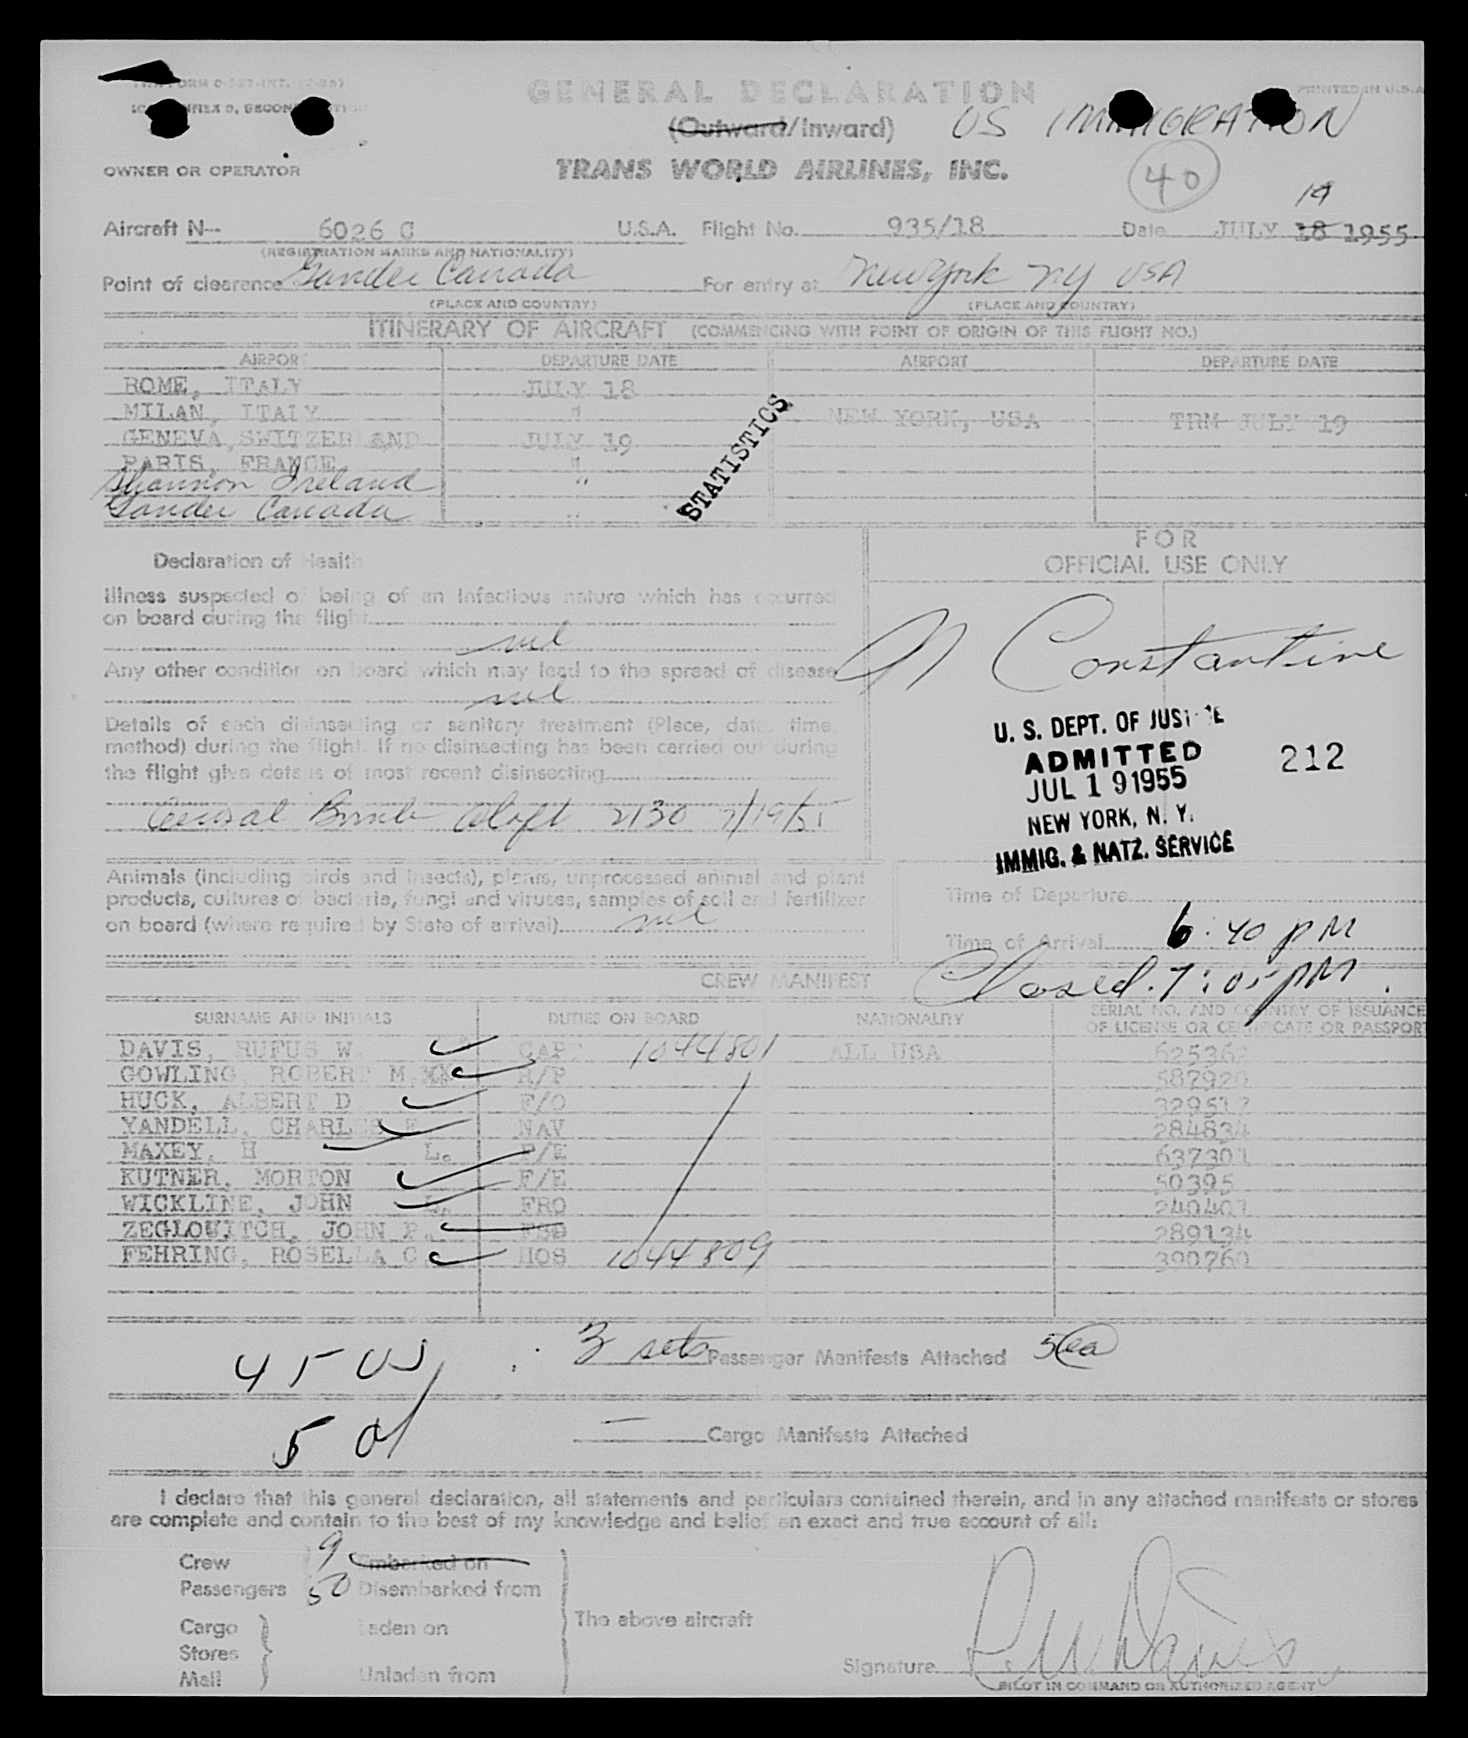 GENERAL DECLARATION
PRINTED IN U.S.A.
(Outward/Inward) US IMMIGRATION
OWNER OR OPERATOR
TRANS WORLD AIRLINES, INC.
40
19
Aircraft N-- 6026 C U.S.A. Flight No. 935/18 Date JULY 18 1955
(REGISTRATION MARKS AND NATIONALITY)
Point of clearence Gander Canada For entry at New York NY USA
(PLACE AND COUNTRY) (PLACE AND COUNTRY)
ITINERARY OF AIRCRAFT (COMMENCING WITH POINT OF ORIGIN OF THIS FLIGHT NO.)
AIRPORT DEPARTURE DATE AIRPORT DEPARTURE DATE
ROME, ITALY JULY 18
MILAN, ITALY " NEW YORK, USA TRM JULY 19
GENEVA, SWITZERLAND JULY 19
PARIS, FRANCE "
Shannon Ireland "
Gander Canada "
STATISTICS
Declaration of Health
Illness suspected of being of an infectious nature which has occurred
on board during the flight
nil
Any other condition on board which may lead to the spread of disease
nil
Details of each disinsecting or sanitary treatment (Place, date, time,
method) during the flight. If no disinsecting has been carried out during
the flight give details of most recent disinsecting
Aerosal Bomb Aloft 2130 7/19/55
FOR
OFFICIAL USE ONLY
N Constantine
U. S. DEPT. OF JUSTICE
ADMITTED 212
JUL 19 1955
NEW YORK, N. Y.
IMMIG. & NATZ. SERVICE
Animals (including birds and insects), plants, unprocessed animal and plant
products, cultures of bacteria, fungi and viruses, samples of soil and fertilizer
on board (where required by State of arrival) nil
Time of Departure
Time of Arrival 6:40 PM
Closed. 7:05 PM.
CREW MANIFEST
SURNAME AND INITIALS DUTIES ON BOARD NATIONALITY SERIAL NO. AND COUNTRY OF ISSUANCE
OF LICENSE OR CERTIFICATE OR PASSPORT
DAVIS, RUFUS W. CAPT 1044801 ALL USA 625362
GOWLING, ROBERT M. R/P 587920
HUCK, ALBERT D F/O 329517
YANDELL, CHARLES E NAV 284834
MAXEY, H L. P/E 637301
KUTNER, MORTON F/E 50395
WICKLINE, JOHN L. FRO 240401
ZEGLOUITCH, JOHN P. 289134
FEHRING, ROSELLA C. HOS 1044809 390760
45 US 3 sets Passenger Manifests Attached 5 ea
5 al — Cargo Manifests Attached
I declare that this general declaration, all statements and particulars contained therein, and in any attached manifests or stores
are complete and contain to the best of my knowledge and belief an exact and true account of all:
Crew 9 Embarked on
Passengers 50 Disembarked from
Cargo Laden on The above aircraft
Stores
Mail Unladen from
Signature R.W. Davis
PILOT IN COMMAND OR AUTHORIZED AGENT